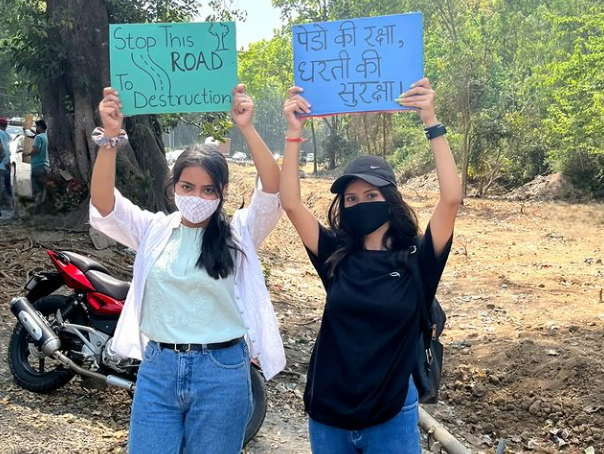 Stop This
ROAD
To
Destruction
पेडो की रक्षा,
धरती की
सुरक्षा।